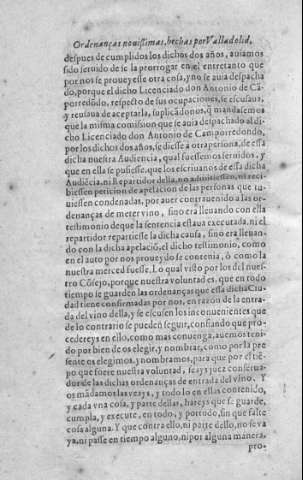 Ordenanças nouissimas, hechas por Valladolid,
despues de cumplidos los dichos dos años, auiamos
sido seruido de se la prorrogar en el entretanto que
por nos se proueyesse otra cosa, y no se auia despacha
do, porque el dicho Licenciado don Antonio de Cã-
porredõdo, respecto de sus ocupaciones, se escusaua,
y reusaua de aceptarla, suplicãdonos, q̃ mandassemos
que la misma comission que se auia despachado al di-
cho Licenciado don Antonio de Camporredondo,
por los dichos dos años, se diesse a otra persona, de essa
dicha nuestra Audiencia, qual fuessemos seruidos, y
que en ella se pusiesse, que los escriuanos de essa dicha
Audiẽcia, ni Repartidor della, no admitiessen, ni reci-
biessen peticion de apelacion de las personas que tu-
uiessen condenadas, por auer contrauenido a las or-
denanças de meter vino, sino era lleuando con ella
testimonio de que la sentencia estaua executada, ni el
repartidor repartiesse la dicha causa, sino era lleuan-
do con la dicha apelaciõ, el dicho testimonio, como
en el auto por nos proueydo se contenia, ò como la
nuestra merced fuesse. Lo qual visto por los del nues-
tro Cõsejo, porque nuestra voluntad es, que en todo
tiempo se guarden las ordenanças que essa dicha Ciu-
dad tiene confirmadas por nos, en razon de la entra-
da del vino della, y se escusen los inconuenientes que
de lo contrario se pueden seguir, confiando que pro-
cedereys en ello, como mas conuenga, auemos teni-
do por bien de os elegir, y nombrar, como por la pre
sente os elegimos, y nombramos, para que por el tiẽ-
po que fuere nuestra voluntad, seays juez conserua-
dor de las dichas ordenanças de entrada del vino. Y
os mãdamos las veays, y todo lo en ellas contenido,
y cada vna cosa, y parte dellas, hareys que se guarde,
cumpla, y execute, en todo, y por todo, sin que falte
cosa alguna. Y que contra ello, ni parte dello, no se va
ya, ni passe en tiempo alguno, ni por alguna manera,
pro-